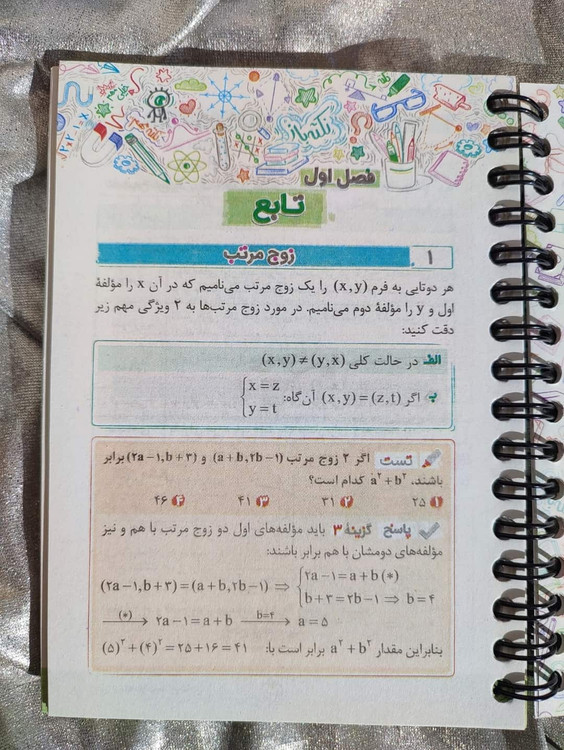 نکته‌باز
فصل اول
تابع
۱ زوج مرتب
هر دوتایی به فرم (x,y) را یک زوج مرتب می‌نامیم که در آن x را مؤلفهٔ
اول و y را مؤلفهٔ دوم می‌نامیم. در مورد زوج مرتب‌ها به ۲ ویژگی مهم زیر
دقت کنید:
الف در حالت کلی (x,y)≠(y,x)
ب اگر (x,y)=(z,t) آن‌گاه: {x=z
y=t
تست اگر ۲ زوج مرتب (a+b,۲b−۱) و (۲a−۱,b+۳) برابر
باشند، a²+b² کدام است؟
۱ ۲۵ ۲ ۳۱ ۳ ۴۱ ۴ ۴۶
پاسخ گزینه ۳ باید مؤلفه‌های اول دو زوج مرتب با هم و نیز
مؤلفه‌های دومشان با هم برابر باشند:
(۲a−۱,b+۳)=(a+b,۲b−۱) ⇒ {۲a−۱=a+b (*)
b+۳=۲b−۱ ⇒ b=۴
(*)→ ۲a−۱=a+b b=۴→ a=۵
بنابراین مقدار a²+b² برابر است با: (۵)²+(۴)²=۲۵+۱۶=۴۱